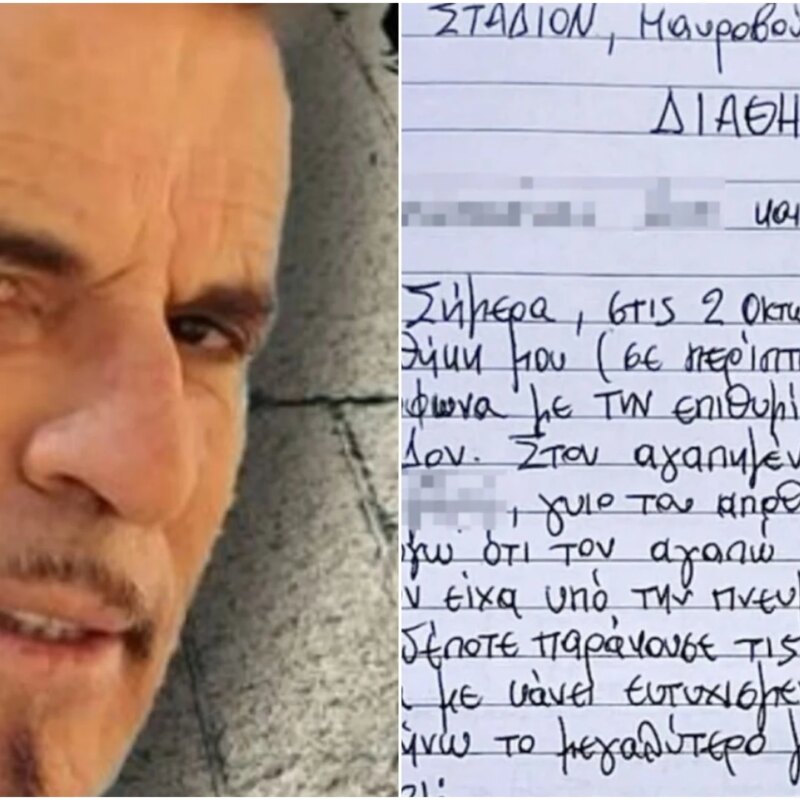 ΣΤΑΔΙΟΝ, Μαυροβού
ΔΙΑΘΗ
και
Σήμερα, στις 2 Οκτω
θήκη μου (σε περίπτ
φωνα με την επιθυμί
Δον. Στον αγαπημέν
, γυιο του απρθ
ότι τον αγαπώ
ν είχα υπό την πνευ
δέποτε παράκουσε τις
με κάνει ευτυχισμέ
ήνω το μεγαλύτερο